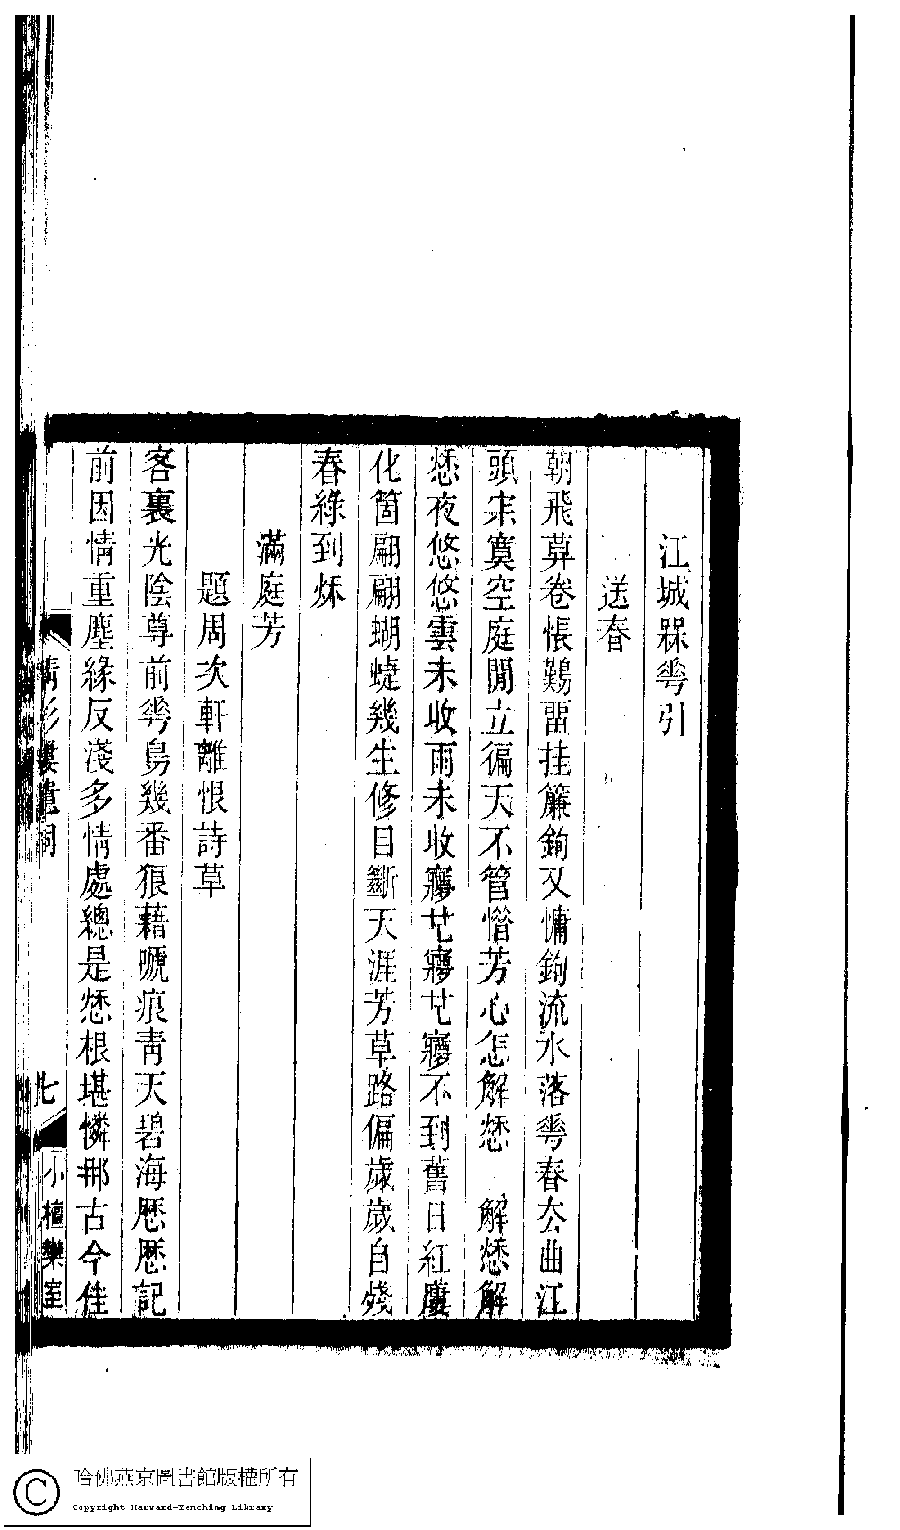 江城槑䔢引
送春
朝飛莫卷悵鷄畱挂簾鉤又慵鉤流水落䔢春厺曲江
頭宋寞空庭閒立徧天不管惜芳心怎解愁　解愁解
愁夜悠悠雲未收雨未收癮也癮也癮不到舊日紅廔
化箇翩翩蝴蜨幾生修目斷天涯芳草路偏歲歲自殘
春綠到秌
滿庭芳
題周次軒離恨詩草
客裏光陰尊前䔢鳥幾番狼藉嗁痕靑天碧海歷歷記
前因情重塵緣反淺多情處總是愁根堪憐那古今佳
影樓遺詞
七
小檀欒室
哈佛燕京圖書館版權所有
Copyright Harvard-Yenching Library